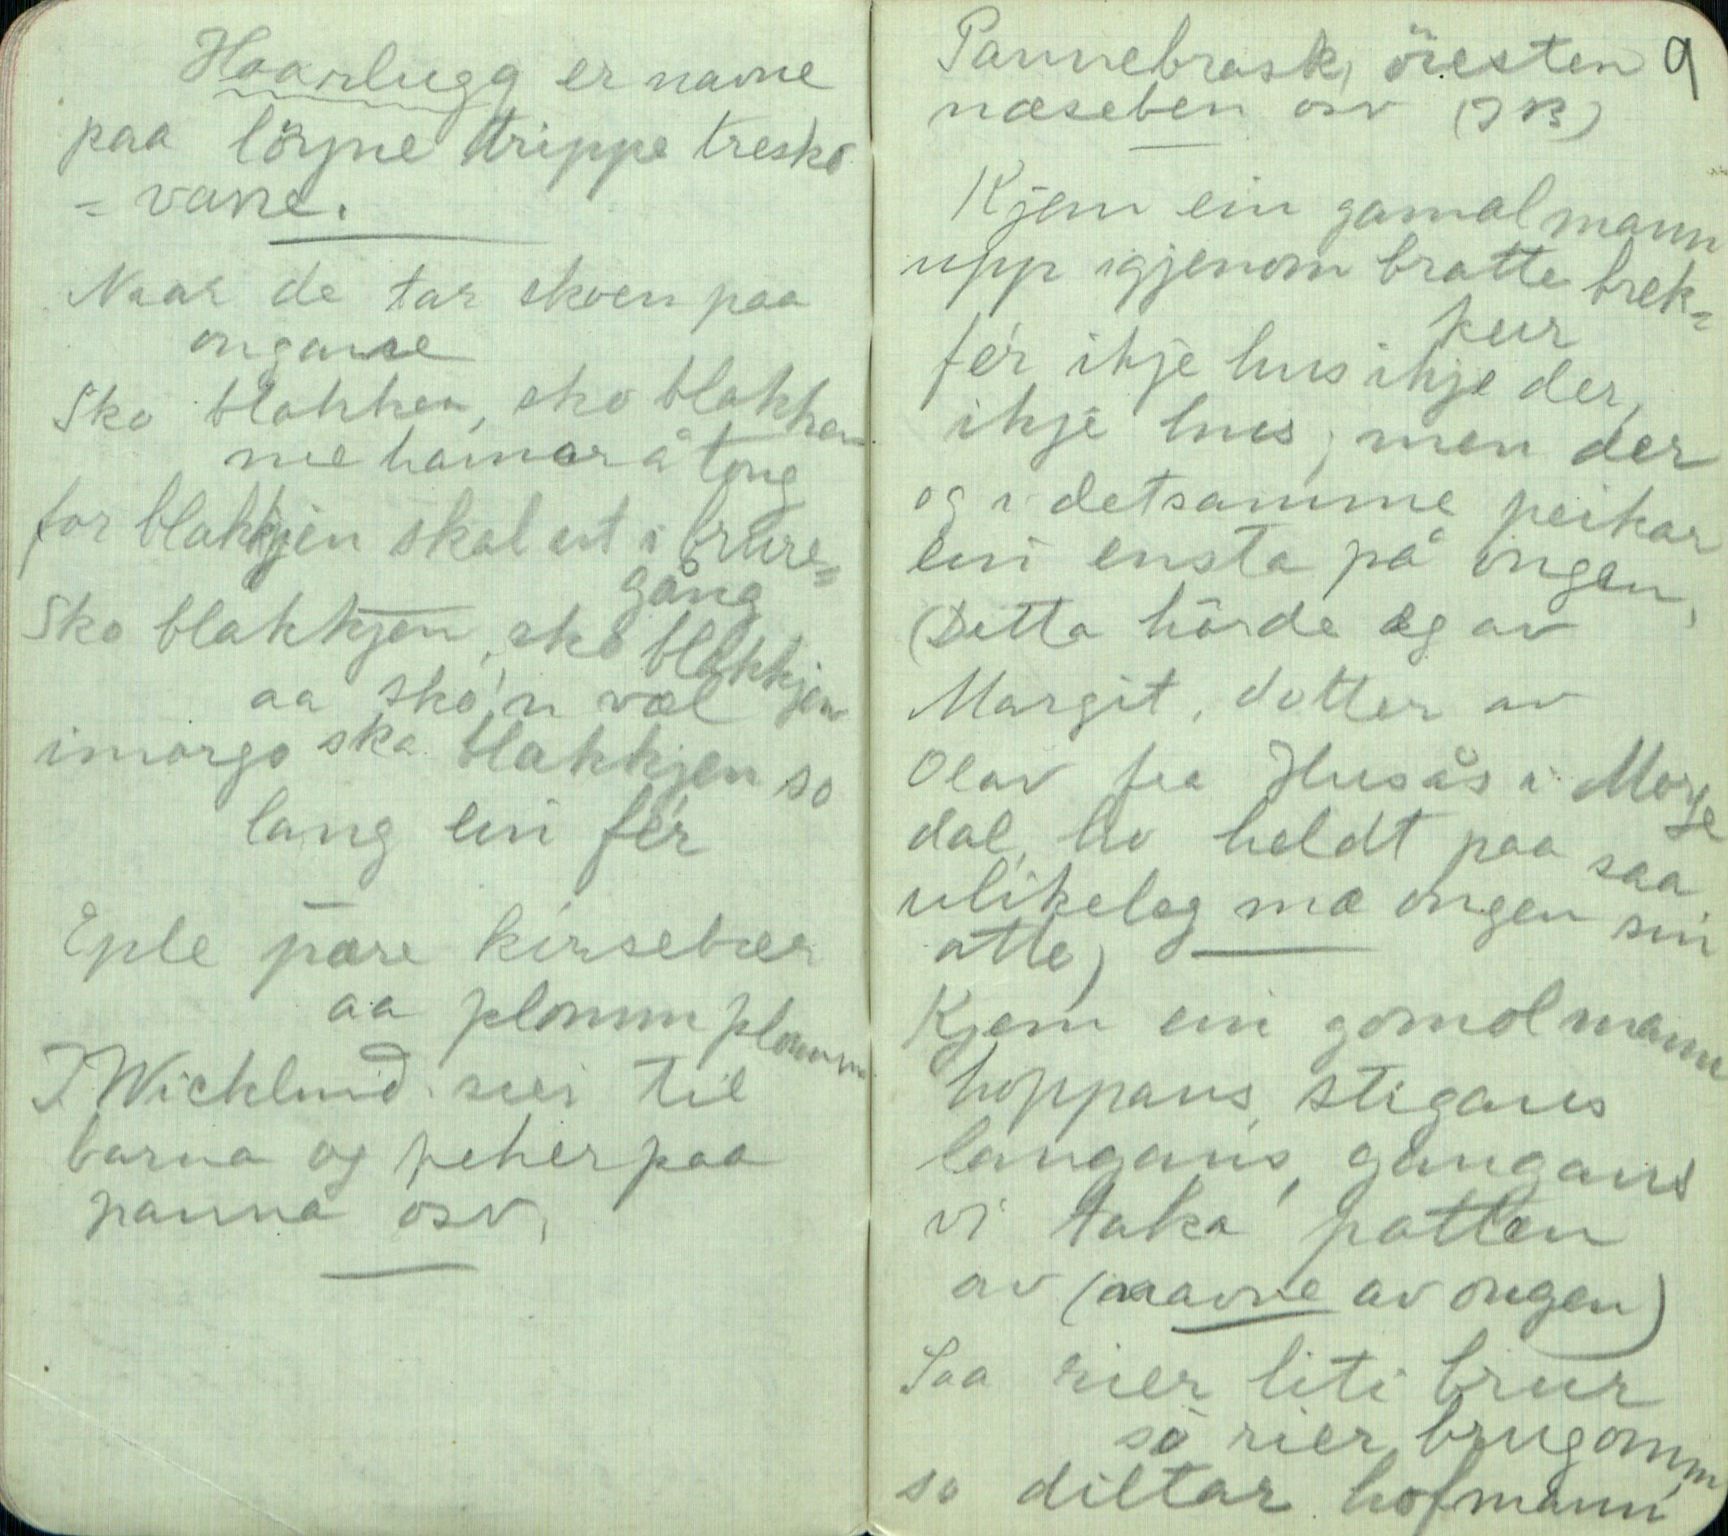 Haarlugg er navne
paa löyne trippe tresko
= vane.
Naar de tar skoen paa
ongane
Sko blakken, sko blakken
me hamar å tong
for blakkjen skal ut i brure=
gång
Sko blakkjen, sko blakkjen
aa sko'n væl
imorgo ska blakkjen so
lang ein fér
Eple pære kirsebær
aa plomm plomm
J. Wicklund sier til
barna og peker paa
panna osv.
Pannebrask, öiesten 9
næseben osv (J B)
Kjem ein gamal mann
upp igjenom bratte brek=
kur
fér ikje hus ikje der,
ikje hus, men der
og i detsamme peikar
ein ensta på ongen,
(Detta hörde eg av
Margit, dotter av
Olav fra Husås i Morge
dal, ho heldt paa saa
ulikeleg mæ ongen sin
atte)
Kjem ein gomol mann
hoppans, stigans
langans, gangans
vi taka patten
av (naavne av ongen)
Saa rier liti brur
so rier brugomm
so diltar hofmann